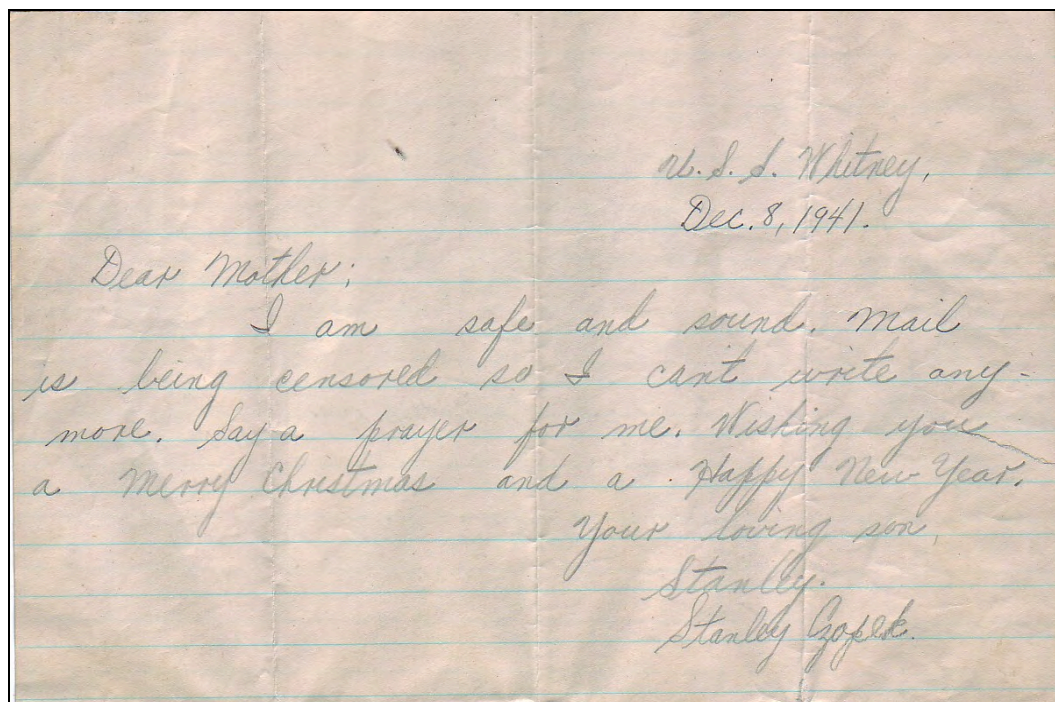 U. S. S. Whitney,
Dec. 8, 1941.
Dear Mother;
I am safe and sound. Mail
is being censored so I cant write any-
more. Say a prayer for me. Wishing you
a Merry Christmas and a Happy New Year.
Your loving son,
Stanley.
Stanley Czopek.